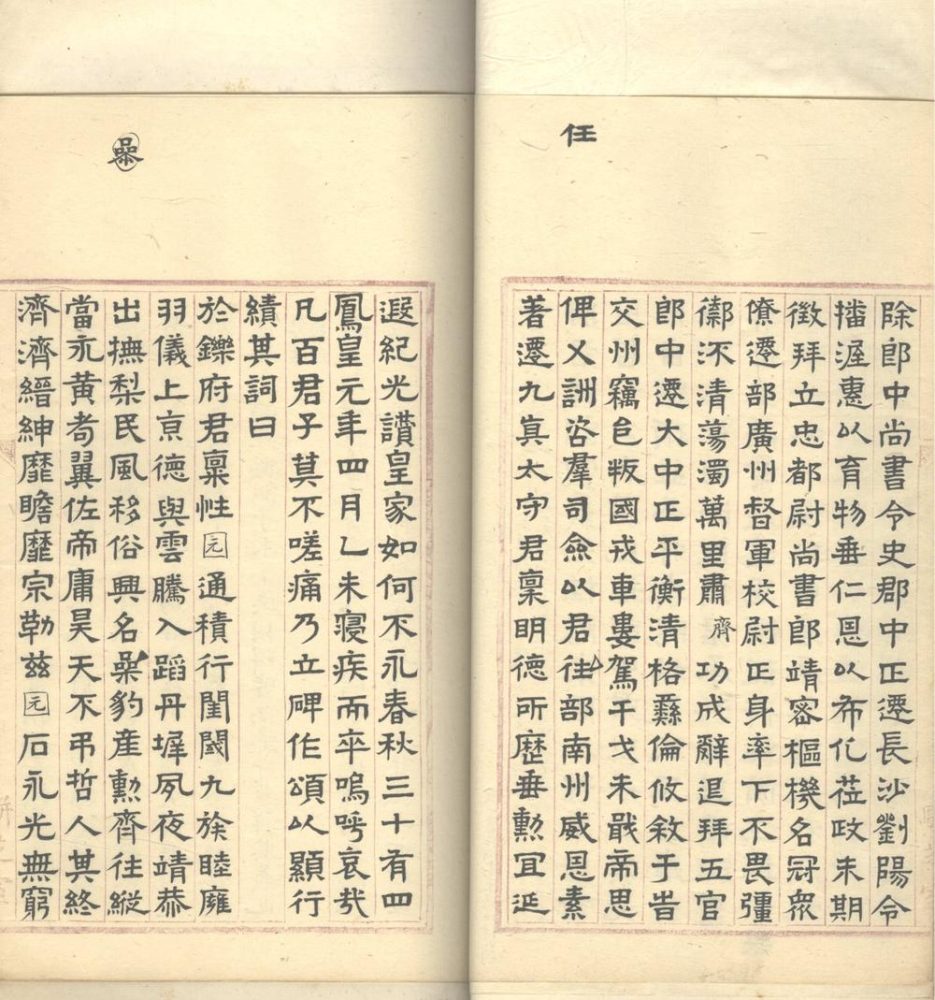 任
除郎中尚書令史郡中正遷長沙劉陽令
播渥惠以育物垂仁恩以布化莅政未期
徵拜立忠都尉尚書郎靖密樞機名冠眾
僚遷部廣州督軍校尉正身率下不畏彊
禦沶清蕩濁萬里肅齊功成辭退拜五官
郎中遷大中正平衡清格彝倫攸敘于旹
交州竊邑叛國戎車婁駕干戈未戢帝思
俾乂詶咨羣司僉以君往部南州威恩素
著遷九真太守君稟明德所歷垂勳宜延
遐紀光讚皇家如何不永春秋三十有四
鳳皇元年四月乙未寢疾而卒嗚呼哀哉
凡百君子莫不嗟痛乃立碑作頌以顯行
績其詞曰
於鑠府君稟性元通積行閨閾九族睦雍
羽儀上京德與雲騰入蹈丹墀夙夜靖恭
出撫梨民風移俗興名喿豹產勳齊往縱
當永黃耇翼佐帝庸昊天不弔哲人其終
濟濟縉紳靡瞻靡宗勒茲元石永光無窮